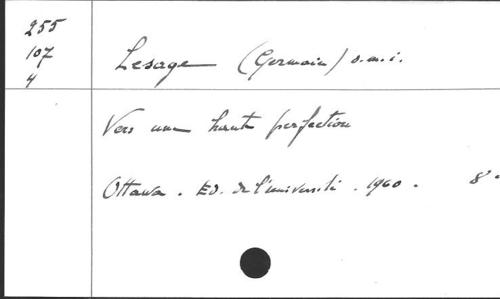 255
107
4
Lesage (Germain) o.m.i.
Vers une haute perfection
Ottawa. Ed. de l'université. 1960. 8°